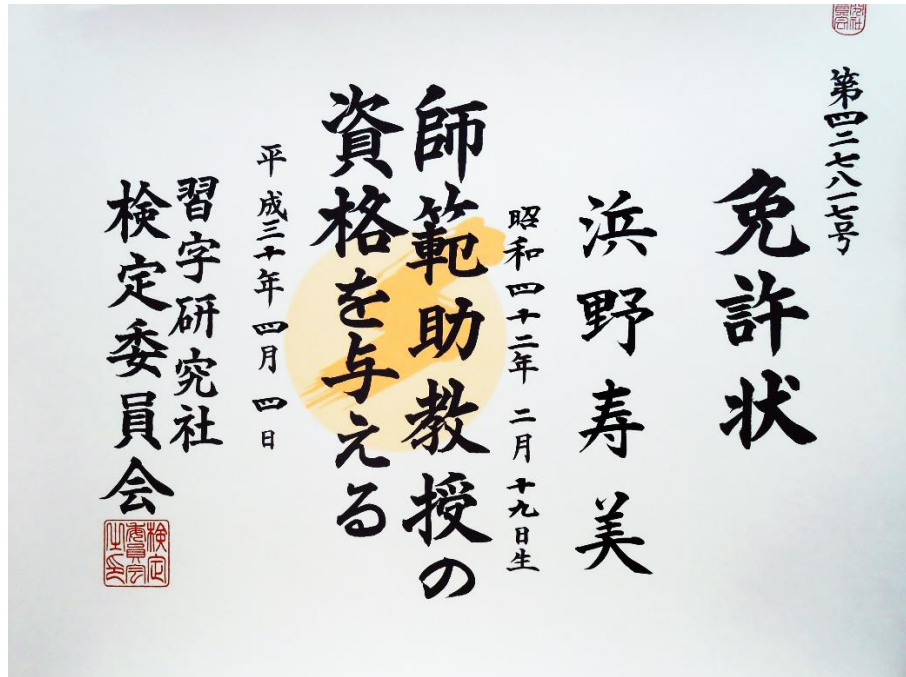 第四二七八一七号
免許状
浜野寿美
昭和四十二年 二月十九日生
師範助教授の
資格を与える
平成三十年 四月 四日
習字研究社
検定委員会
検定
委員会
之印